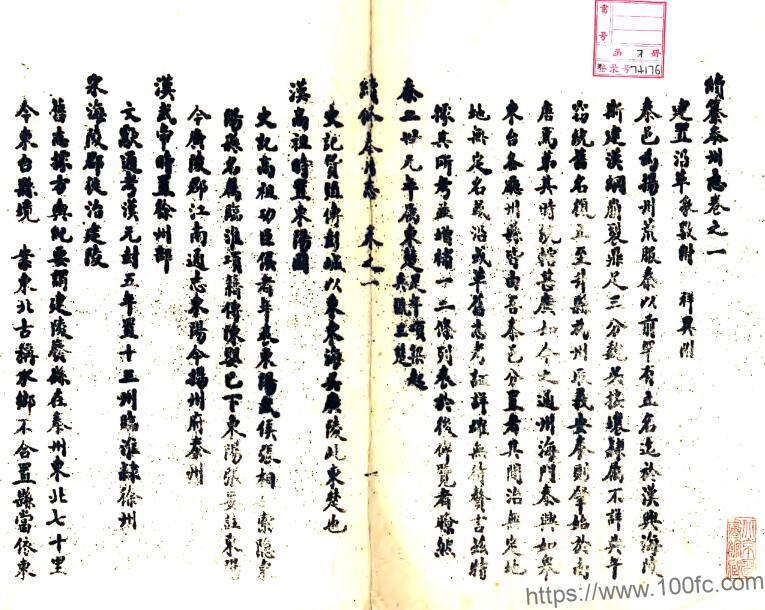 續纂泰州志卷之一
建置沿革 象數附 祥異附
泰邑為揚州荒服秦以前罕有立名迄於漢興海陵
斯建漢綱崩裂鼎足三分魏吳接壤隸屬不詳典午
名復立至升縣為州改義安泰則肇始於南
唐焉第其時統轄甚廣如今之通州海門泰興如皋
東台各廳州縣皆由吾泰邑分置者其間治無定地
地無定名或沿或革舊志考証詳確無待贅言茲特
據其所考並增補一二條列表於後俾覽者瞭然
秦二世元年屬東楚 是年項梁起兵隨立楚
續修泰州志 卷之一 一
史記貨殖傳彭城以東東海吳廣陵此東楚也
漢高祖時置東陽國
史記高祖功臣侯者年表東陽武侯張相 索隱東
陽縣名屬臨淮項籍傳陳嬰已下東陽張晏註東陽
今廣陵郡江南通志東陽今揚州府泰州
漢武帝時置徐州部
文獻通考漢元封五年置十三州臨淮隸徐州
宋海陵郡徙治建陵
舊志據方輿紀要謂建陵廢縣在泰州東北七十里
今東台縣境 案東北古稱水鄉不合置縣當依東
書号
函 才 冊
登录号 74176
https://www.100fc.com